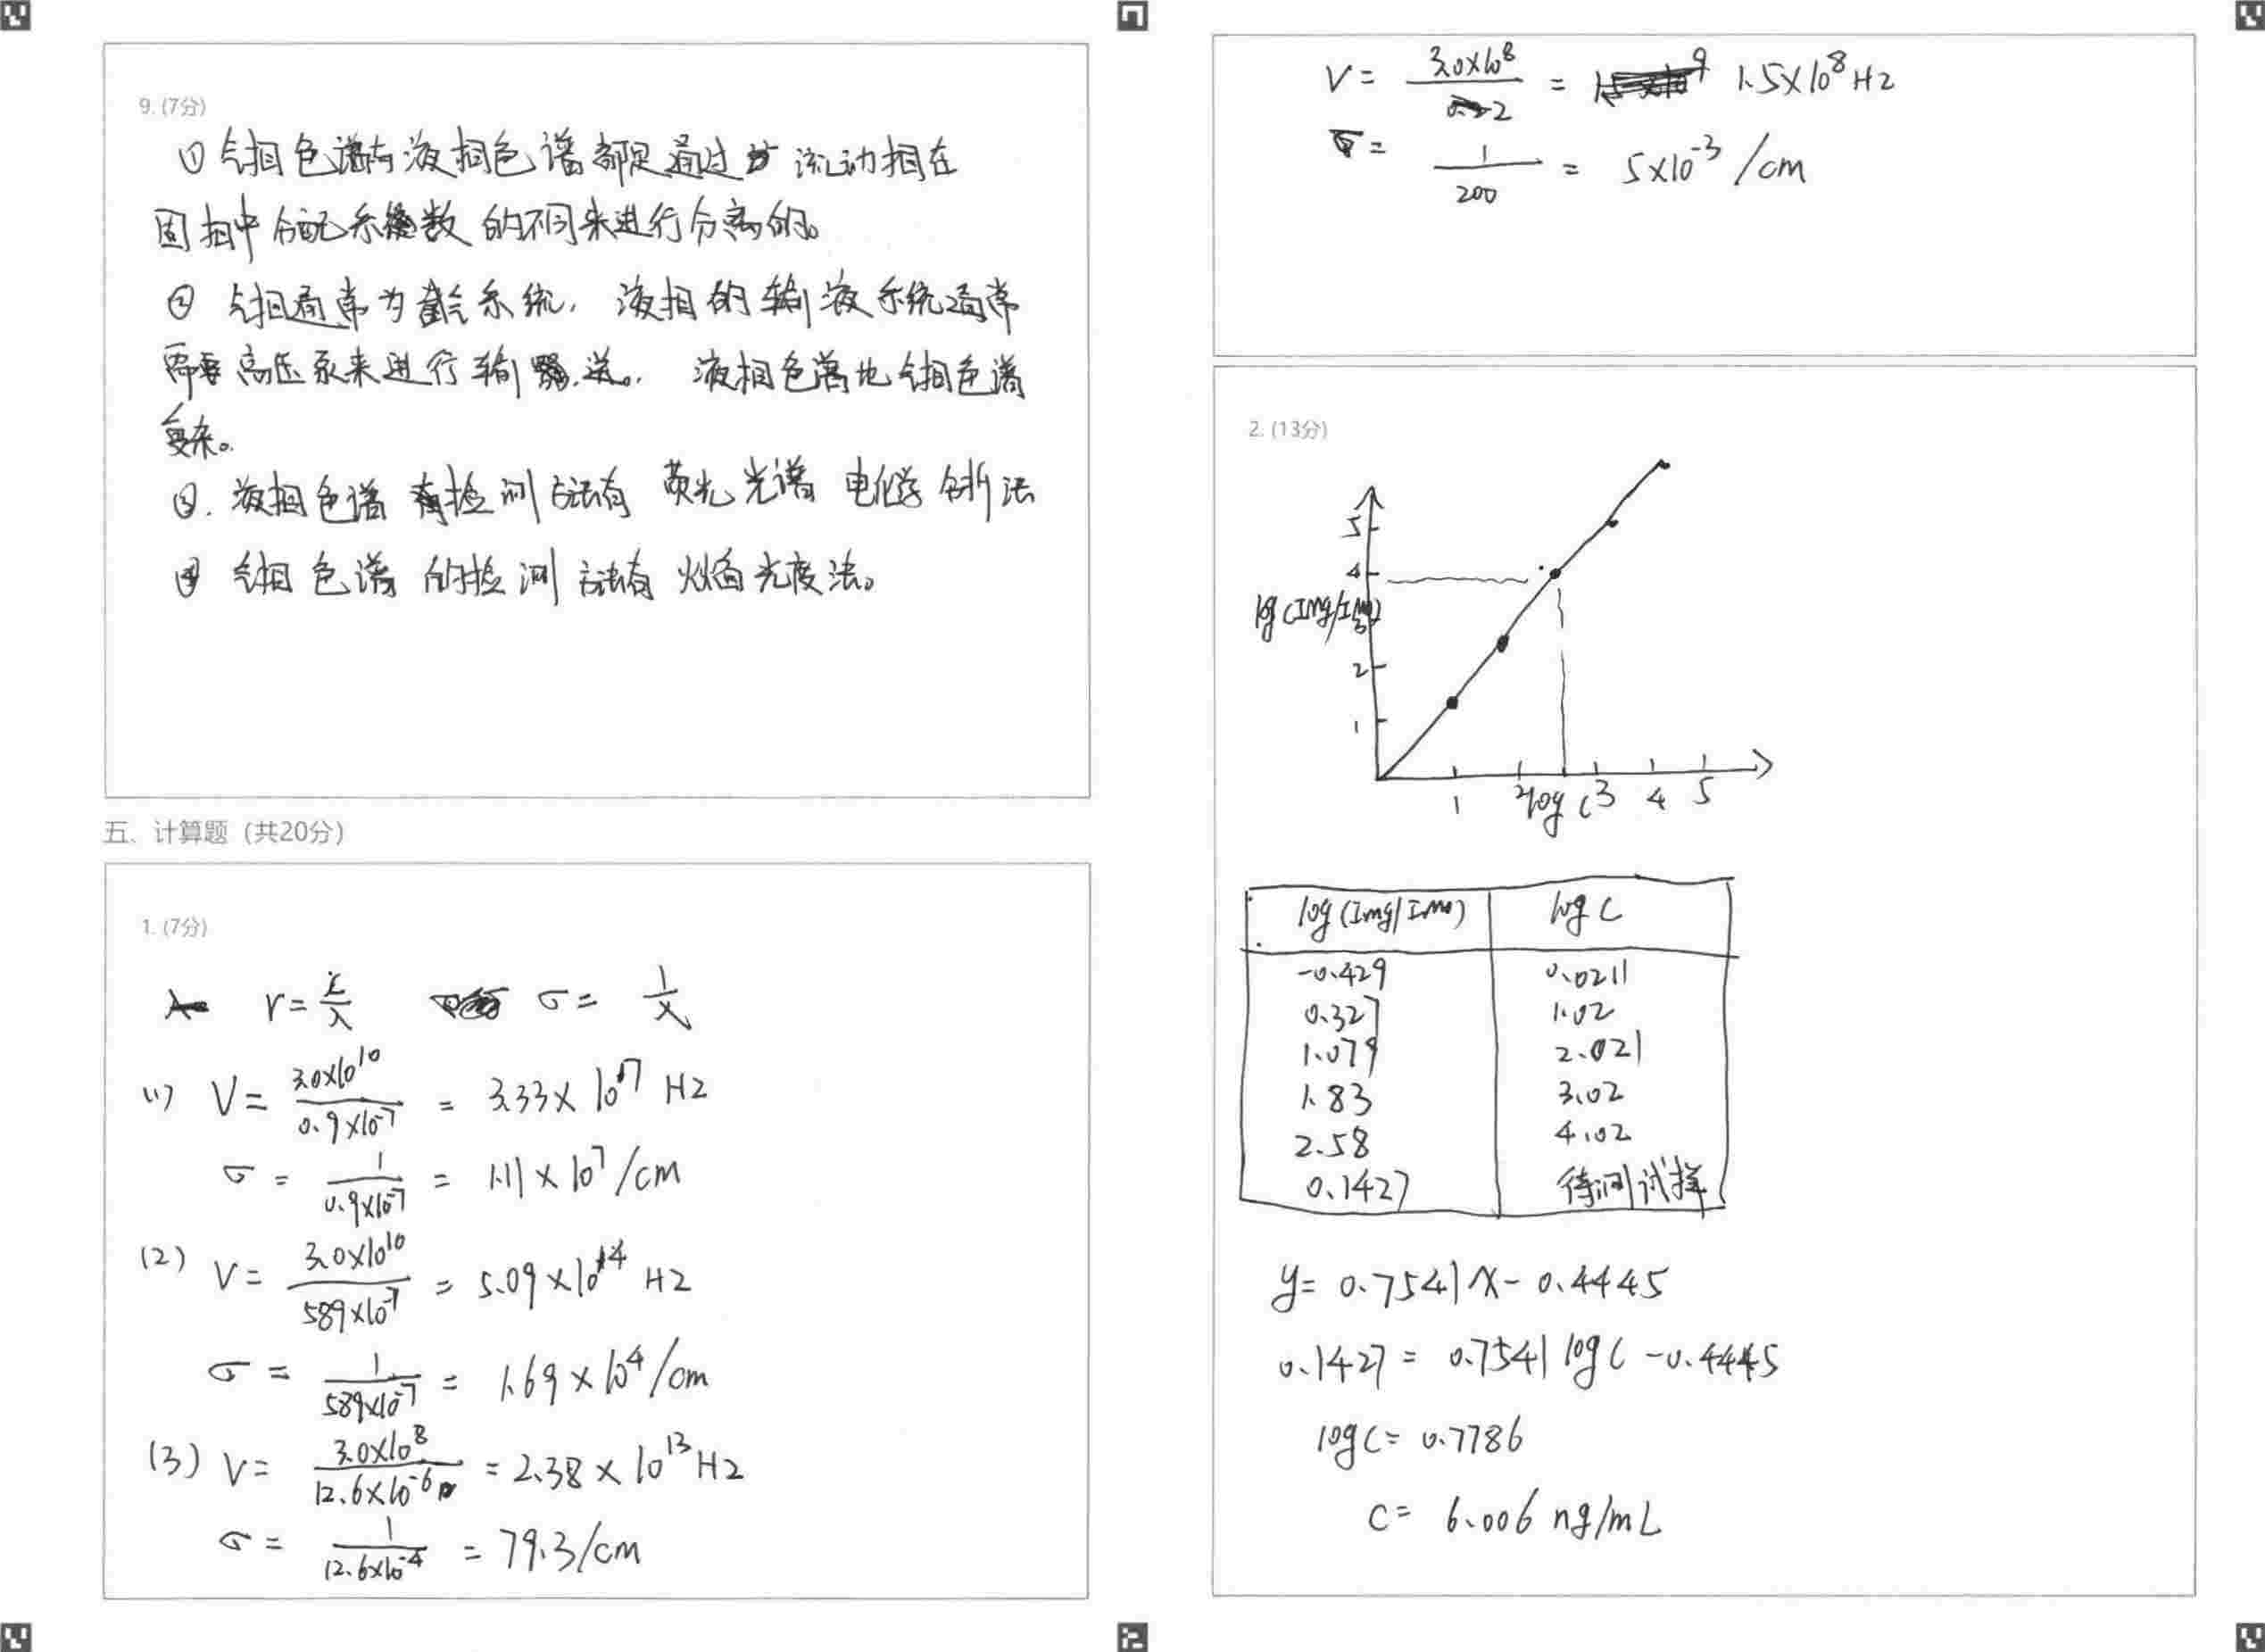 9. (7分)
① 气相色谱与液相色谱都是通过 流动相在
固相中分配系数的不同来进行分离的。
② 气相通常为载气系统, 液相的输液系统通常
需要高压泵来进行输送。 液相色谱比气相色谱
复杂。
③. 液相色谱 检测方法有 荧光光谱 电化学分析法
④ 气相色谱的检测方法有火焰光度法。
五、计算题 (共20分)
1. (7分)
ν = c/λ σ = 1/λ
(1) V = 3.0×10^10 / 0.9×10^-7 = 3.33 × 10^17 Hz
σ = 1 / 0.9×10^-7 = 1.11 × 10^7 /cm
(2) V = 3.0×10^10 / 589×10^-7 = 5.09 × 10^14 Hz
σ = 1 / 589×10^-7 = 1.69 × 10^4 /cm
(3) V = 3.0×10^8 / 12.6×10^-6 = 2.38 × 10^13 Hz
σ = 1 / 12.6×10^-4 = 79.3 /cm
V = 3.0×10^8 / 2 = 1.5×10^8 Hz
σ = 1 / 200 = 5×10^-3 /cm
2. (13分)
5
4
log(Img/Imo)
3
2
1
1 2 3 4 5
log c
log(Img/Imo) log C
-0.429 0.0211
0.327 1.02
1.079 2.021
1.83 3.02
2.58 4.02
0.1427 待测试样
y = 0.7541x - 0.4445
0.1427 = 0.7541 log C - 0.4445
log C = 0.7786
C = 6.006 ng/mL